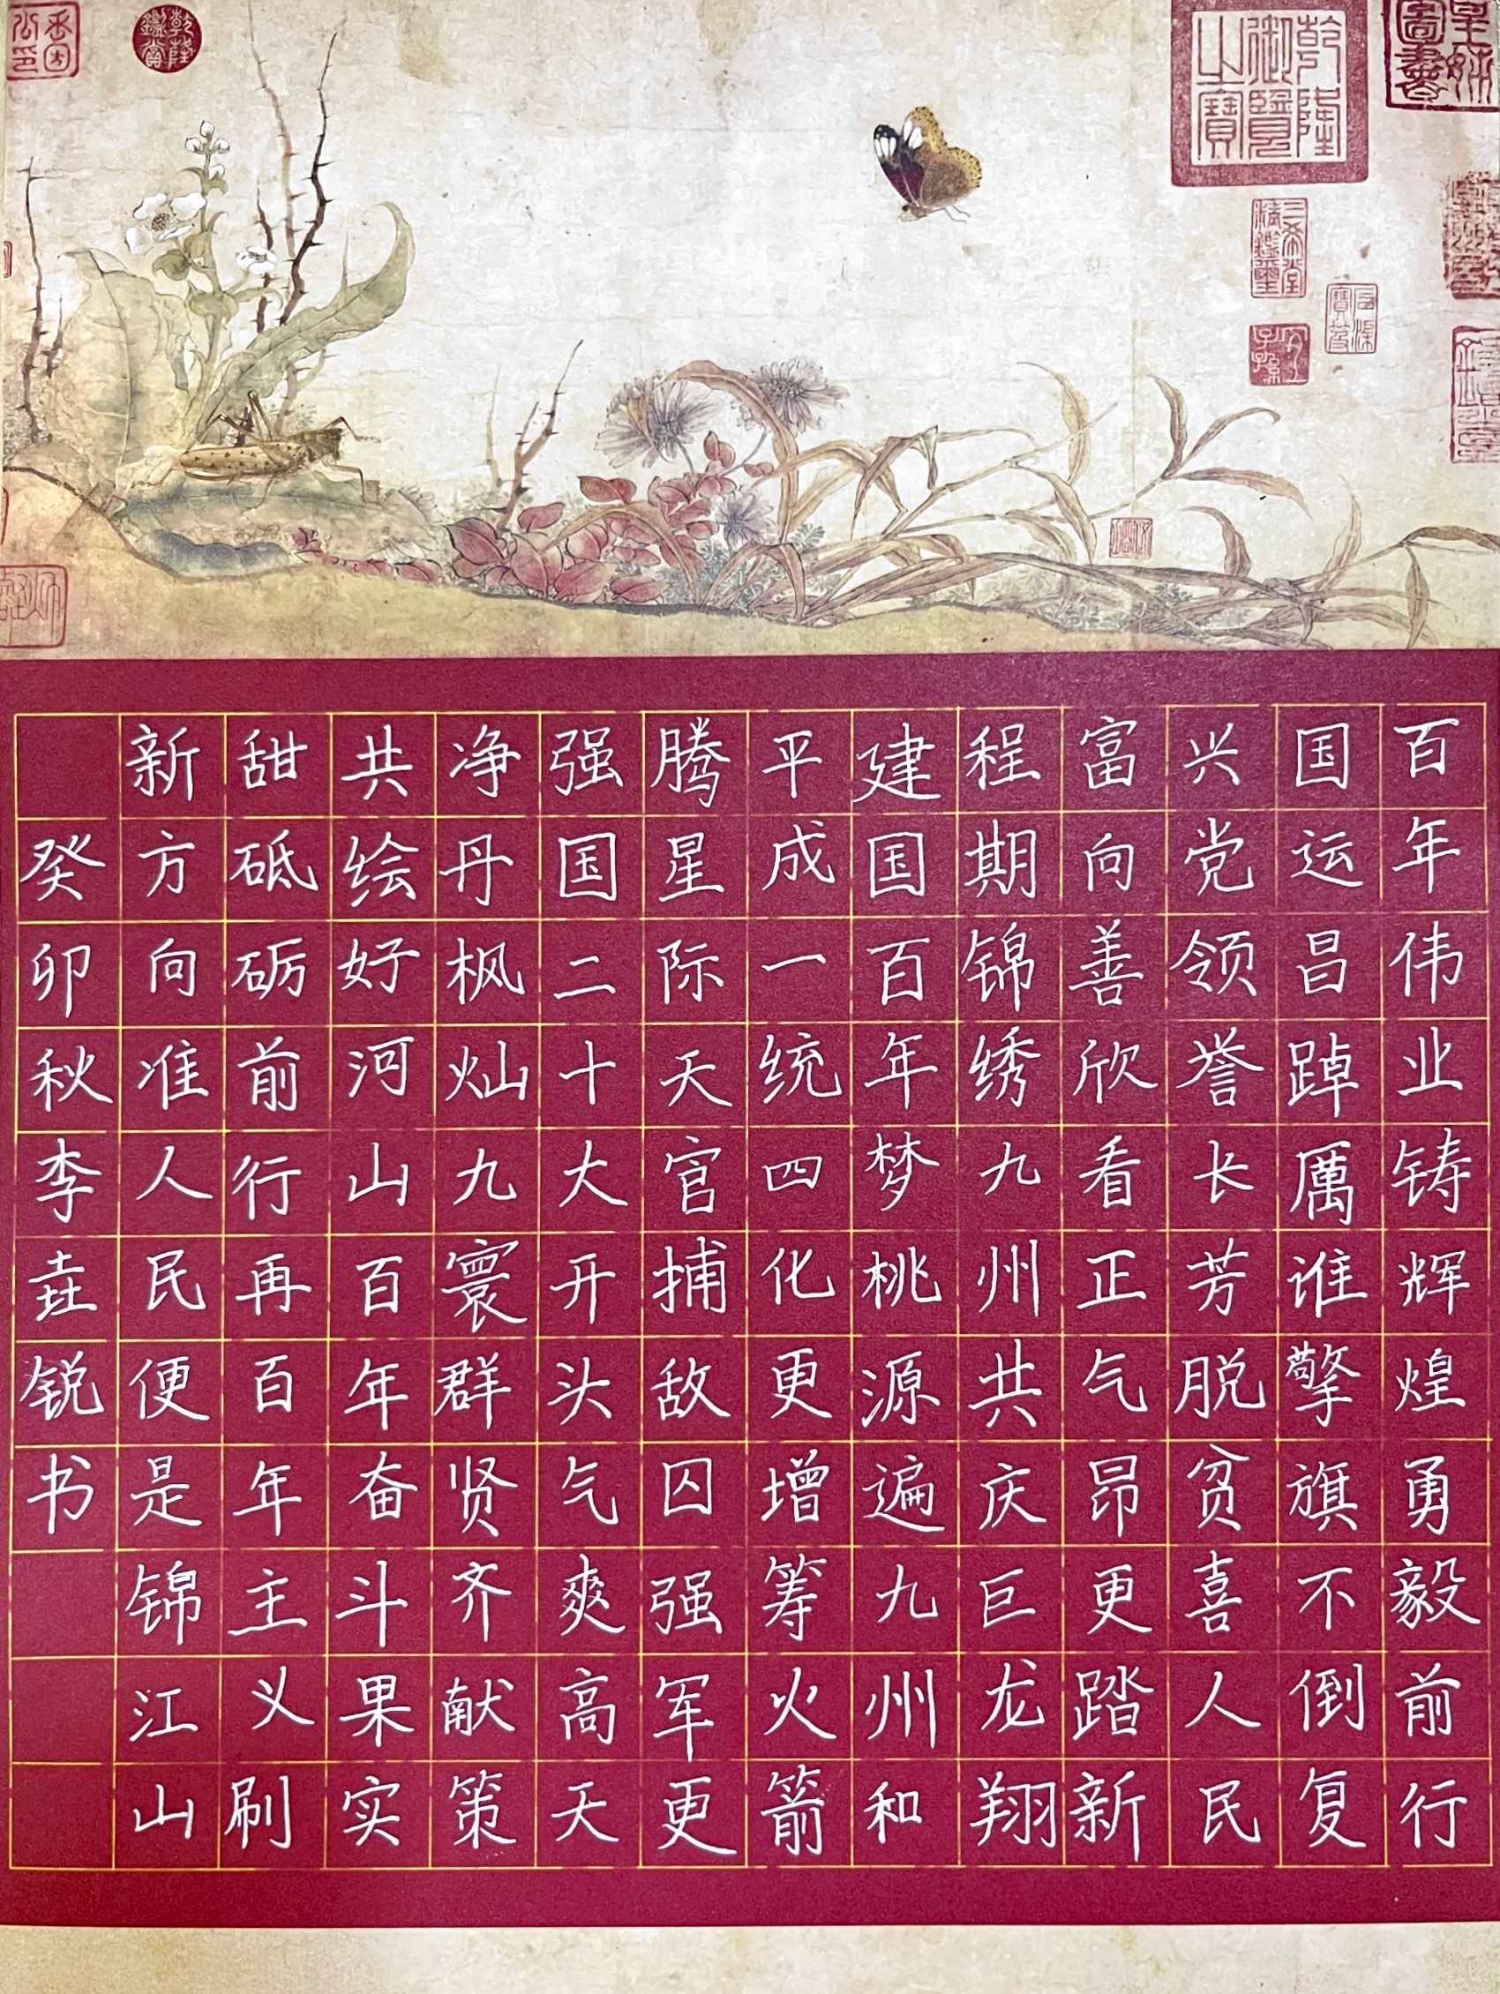 乾隆鑑賞
乾隆御覽之寶
三希堂精鑑璽
宜子孫
百年伟业铸辉煌勇毅前行
国运昌踔厲谁擎旗不倒复
兴党领誉长芳脱贫喜人民
富向善欣看正气昂更踏新
程期锦绣九州共庆巨龙翔
建国百年梦桃源遍九州和
平成一统四化更增筹火箭
腾星际天官捕敌囚强军更
强国二十大开头气爽高天
净丹枫灿九寰群贤齐献策
共绘好河山百年奋斗果实
甜砥砺前行再百年主义刷
新方向准人民便是锦江山
癸卯秋李垚锐书